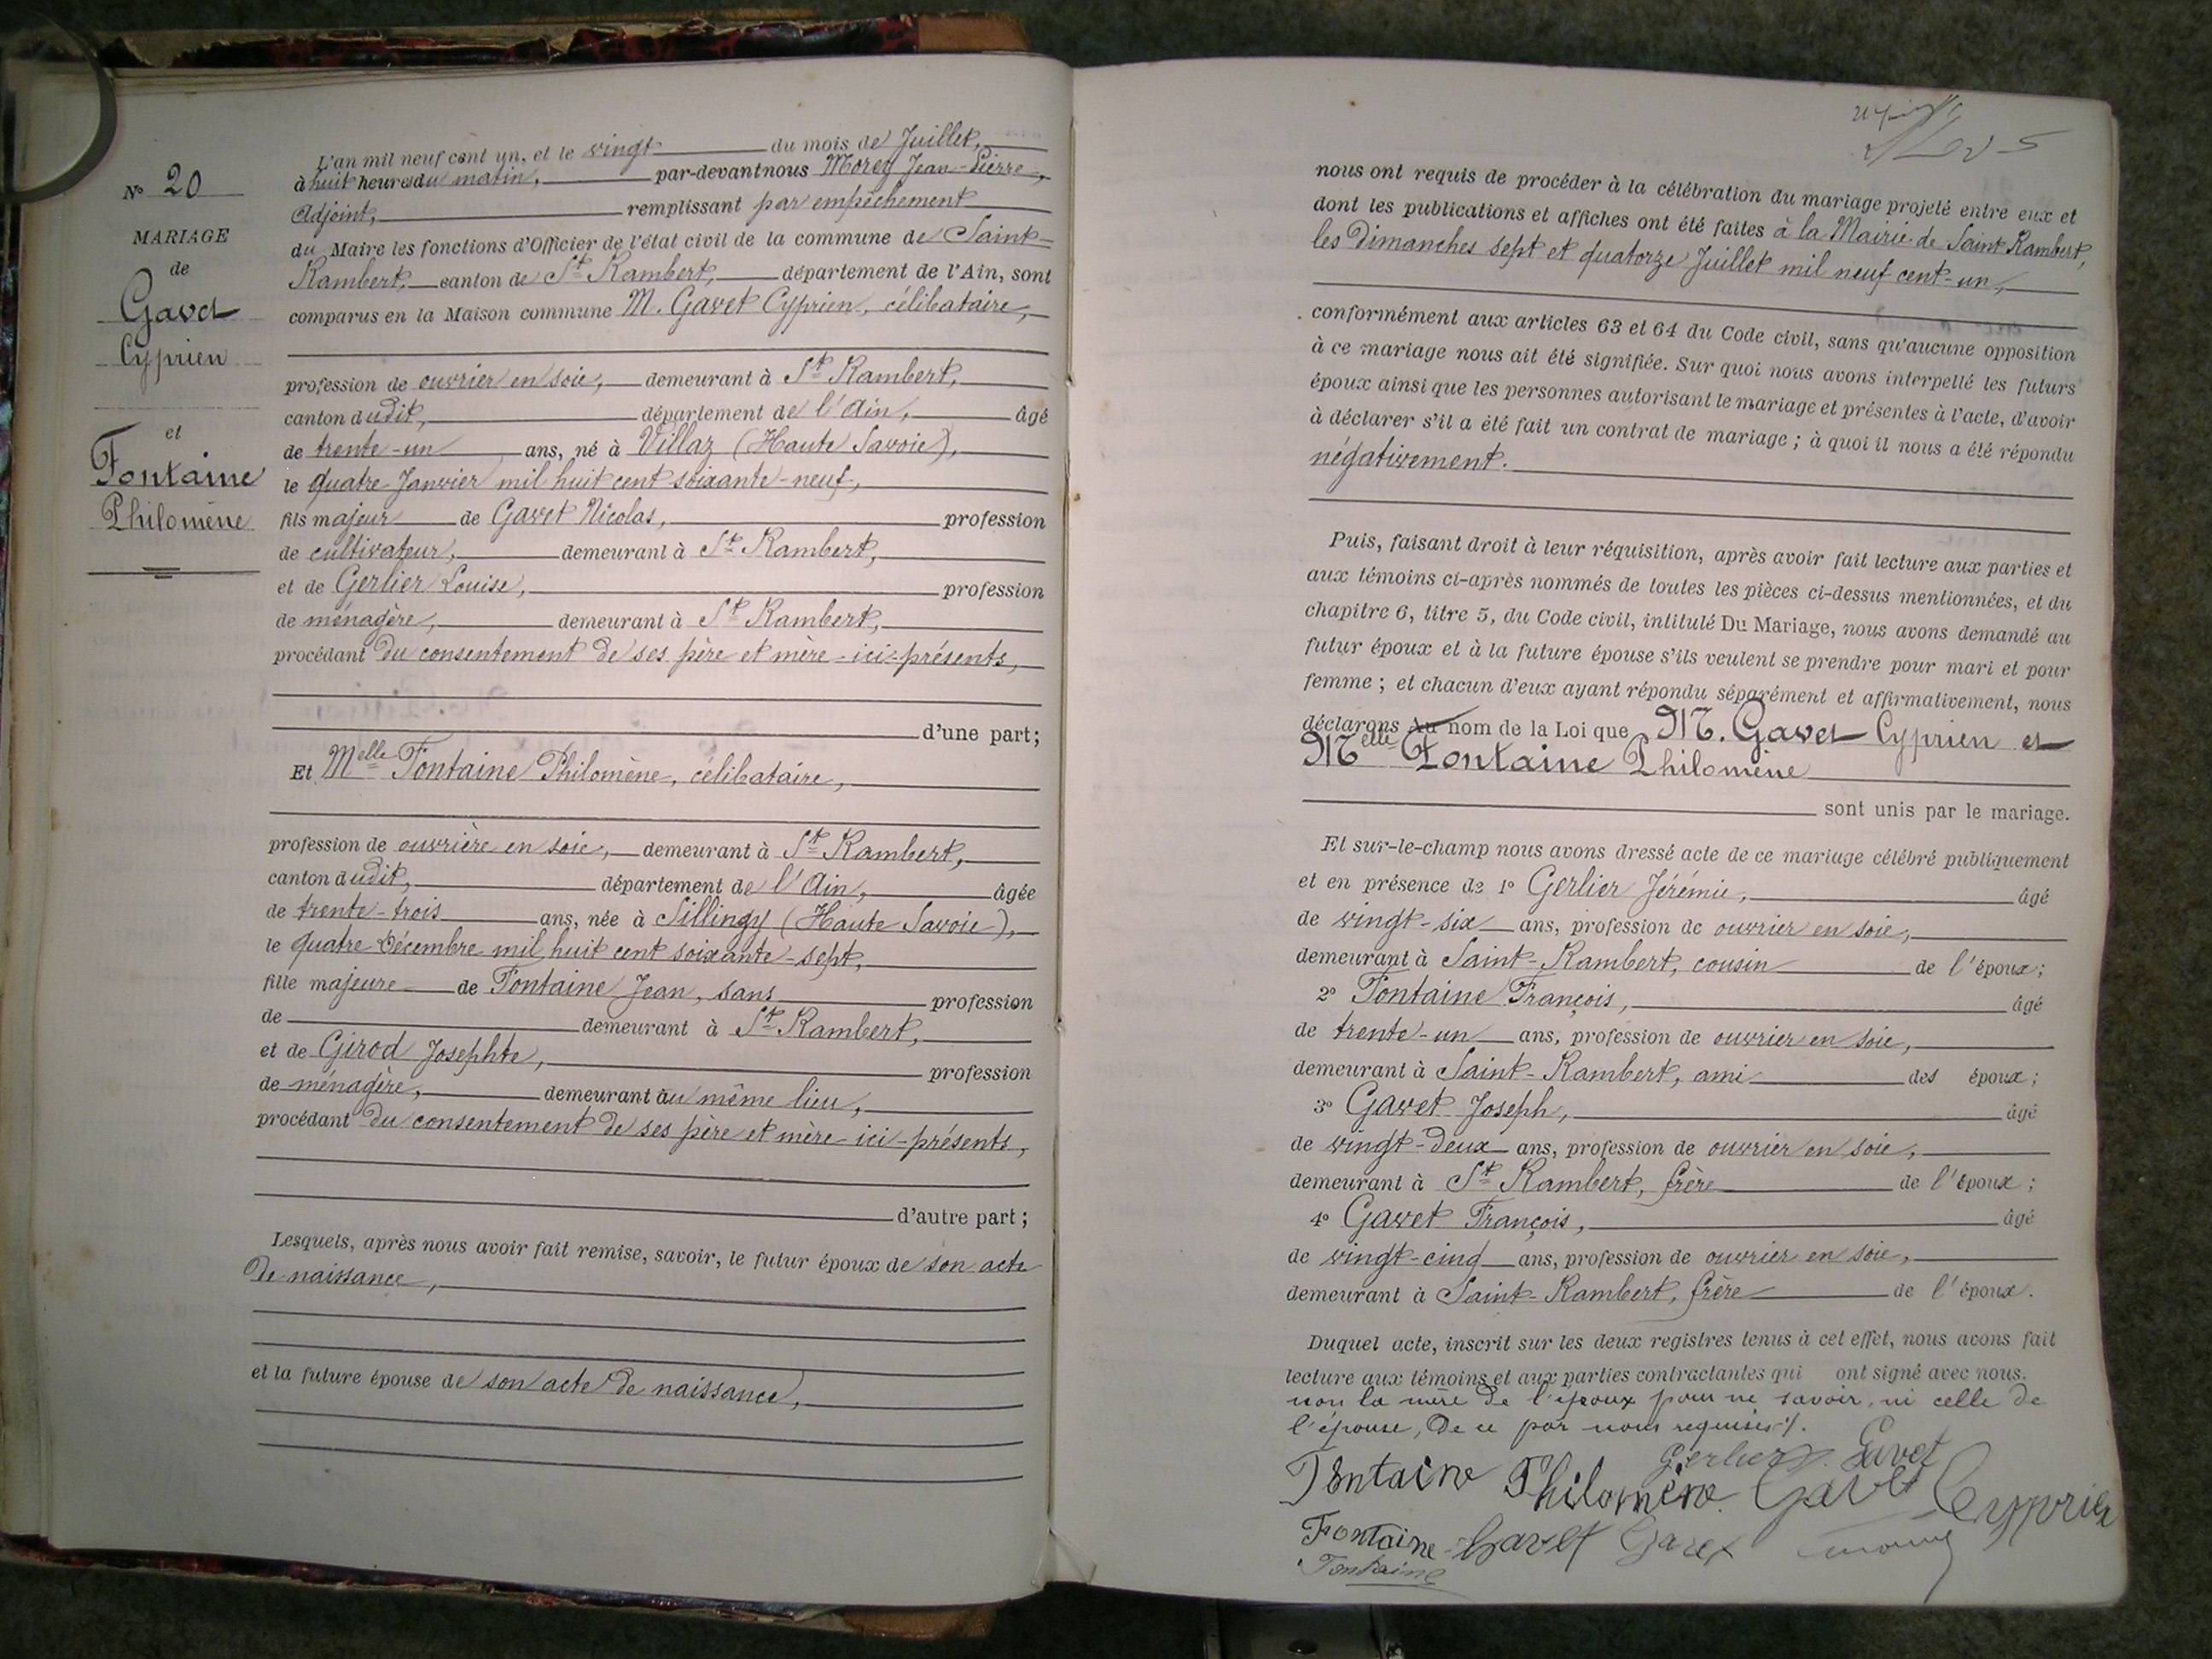 N° 20
MARIAGE
de
Gavet
Cyprien
et
Fontaine
Philomène
L'an mil neuf cent un, et le vingt du mois de Juillet,
à huit heures du matin, par-devant nous Morey Jean-Pierre,
Adjoint, remplissant par empêchement
du Maire les fonctions d'Officier de l'état civil de la commune de Saint-
Rambert, canton de St Rambert, département de l'Ain, sont
comparus en la Maison commune M. Gavet Cyprien, célibataire,
profession de ouvrier en soie, demeurant à St Rambert,
canton dudit, département de l'Ain, âgé
de trente-un ans, né à Villaz (Haute Savoie),
le quatre Janvier mil huit cent soixante-neuf,
fils majeur de Gavet Nicolas, profession
de cultivateur, demeurant à St Rambert,
et de Gerlier Louise, profession
de ménagère, demeurant à St Rambert,
procédant du consentement de ses père et mère ici-présents,
d'une part;
Et Melle Fontaine Philomène, célibataire,
profession de ouvrière en soie, demeurant à St Rambert,
canton dudit, département de l'Ain, âgée
de trente-trois ans, née à Sillingy (Haute Savoie),
le quatre Décembre mil huit cent soixante-sept,
fille majeure de Fontaine Jean, sans profession
de demeurant à St Rambert,
et de Girod Josephte, profession
de ménagère, demeurant au même lieu,
procédant du consentement de ses père et mère ici-présents,
d'autre part;
Lesquels, après nous avoir fait remise, savoir, le futur époux de son acte
de naissance,
et la future épouse de son acte de naissance,
nous ont requis de procéder à la célébration du mariage projeté entre eux et
dont les publications et affiches ont été faites à la Mairie de Saint Rambert,
les Dimanches sept et quatorze Juillet mil neuf cent-un,
conformément aux articles 63 et 64 du Code civil, sans qu'aucune opposition
à ce mariage nous ait été signifiée. Sur quoi nous avons interpellé les futurs
époux ainsi que les personnes autorisant le mariage et présentes à l'acte, d'avoir
à déclarer s'il a été fait un contrat de mariage; à quoi il nous a été répondu
négativement.
Puis, faisant droit à leur réquisition, après avoir fait lecture aux parties et
aux témoins ci-après nommés de toutes les pièces ci-dessus mentionnées, et du
chapitre 6, titre 5, du Code civil, intitulé Du Mariage, nous avons demandé au
futur époux et à la future épouse s'ils veulent se prendre pour mari et pour
femme; et chacun d'eux ayant répondu séparément et affirmativement, nous
déclarons Au nom de la Loi que M. Gavet Cyprien et
Melle Fontaine Philomène
sont unis par le mariage.
Et sur-le-champ nous avons dressé acte de ce mariage célébré publiquement
et en présence de 1° Gerlier Jérémie, âgé
de vingt-six ans, profession de ouvrier en soie,
demeurant à Saint-Rambert, cousin de l'époux;
2° Fontaine François, âgé
de trente-un ans, profession de ouvrier en soie,
demeurant à Saint-Rambert, ami des époux;
3° Gavet Joseph, âgé
de vingt-deux ans, profession de ouvrier en soie,
demeurant à St Rambert, frère de l'époux;
4° Gavet François, âgé
de vingt-cinq ans, profession de ouvrier en soie,
demeurant à Saint-Rambert, frère de l'époux.
Duquel acte, inscrit sur les deux registres tenus à cet effet, nous avons fait
lecture aux témoins et aux parties contractantes qui ont signé avec nous.
non la mère de l'époux pour ne savoir, ni celle de
l'épouse, de ce par nous requises.
Gerlier J. Gavet
Fontaine Philomène Gavet Cyprien
Fontaine Gavet Gavet
Fontaine